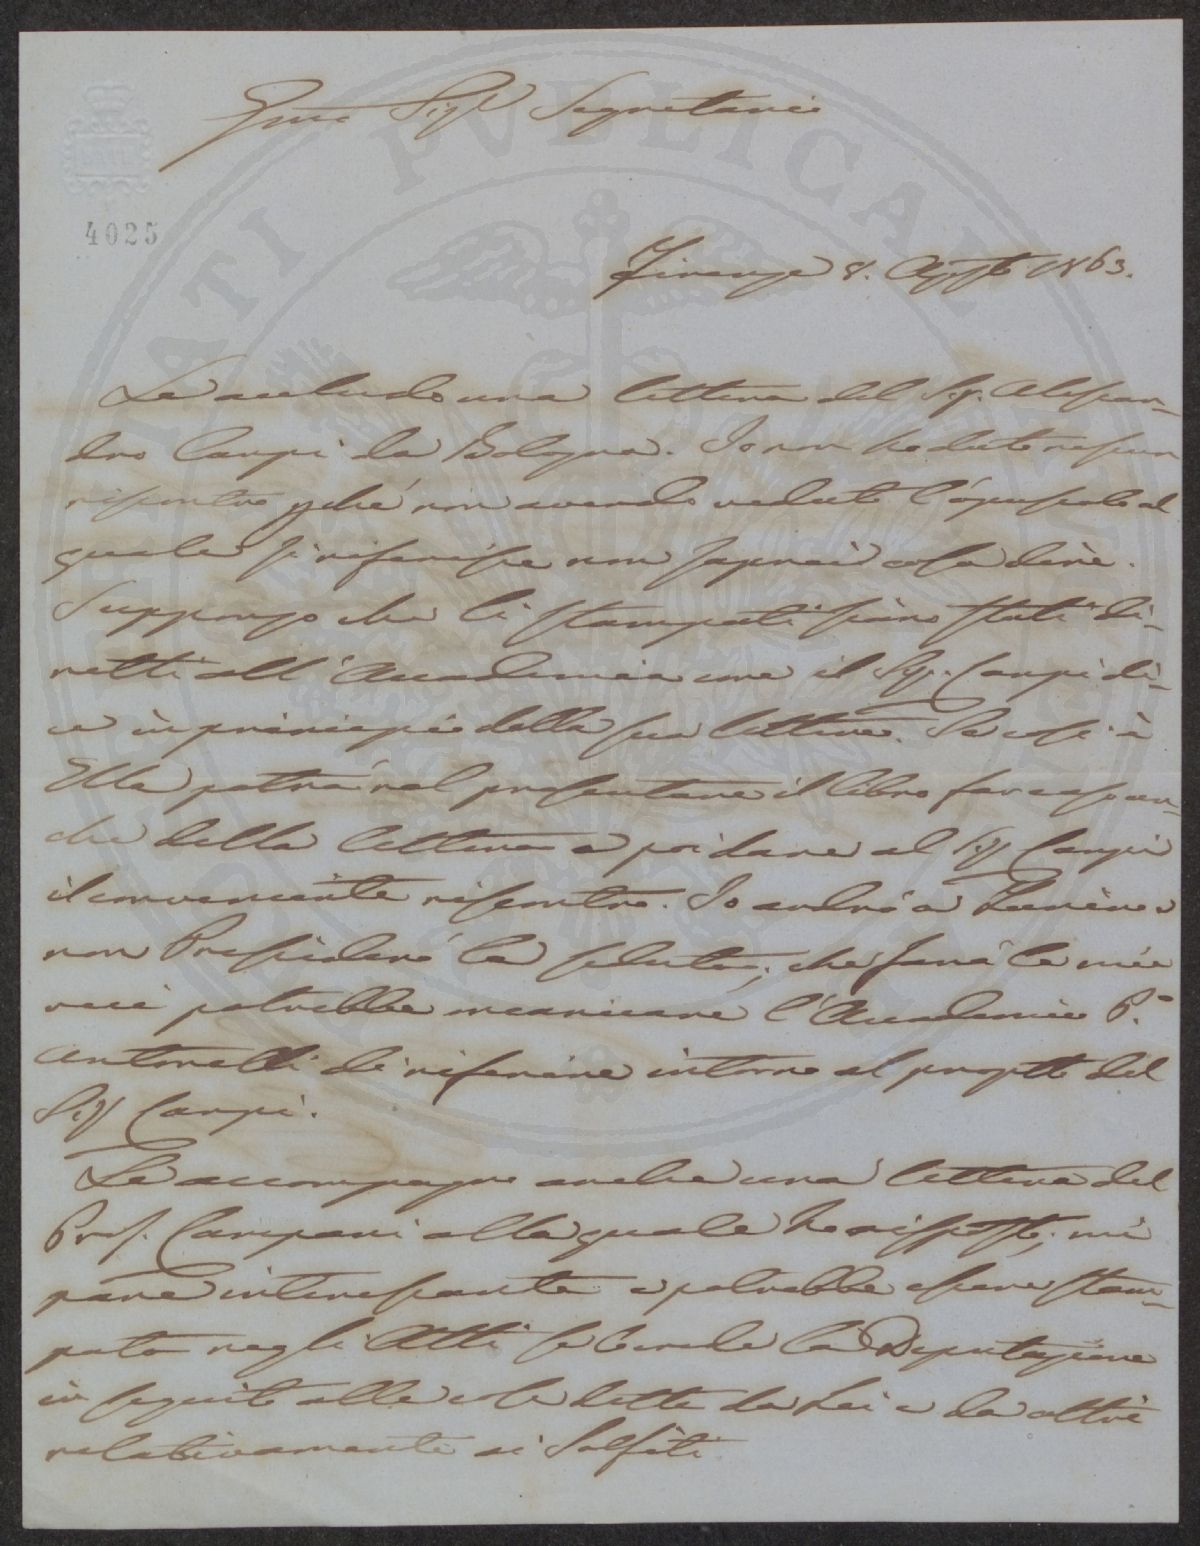 Gmo Sigr Segretario
4025
Firenze 8. Agosto 1863.
Le accludo una lettera del Sig. Alessan-
dro Carpi da Bologna. Io non ho dato nessun
riscontro perché non avendo veduto l'opuscolo al
quale si riferisce non saprei cosa dire.
Suppongo che li stampati siano stati di-
retti all'Accademia come il Sigr. Carpi di-
ce in principio della sua lettera. Se così è
Ella potrà nel presentare il libro far cenno an-
che della lettera e poi dare al Sigr Carpi
il conveniente riscontro. Io andrò a
non Presiederò la seduta; che farà le mie
veci potrebbe incaricare l'Accademico P.e
Antonelli di riferire intorno al progetto del
Sigr Carpi.
Le accompagno anche una lettera del
Prof. Campani alla quale ho risposto; mi
pare interessante e potrebbe essere stam-
pata negli Atti se lo crede la Deputazione
in seguito alle cose dette da Lei e da altri
relativamente ai Solfiti